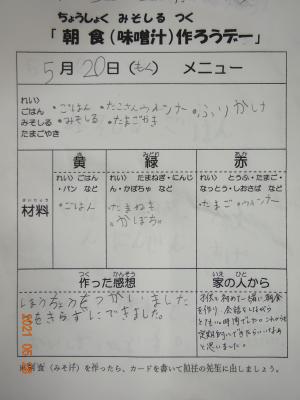 ちょうしょく みそしる つく
「朝食(味噌汁)作ろうデー」
5月20日(もく) メニュー
れい)
ごはん
みそしる
たまごやき
・ごはん ・たこさんウィンナー ・ふりかけ
・みそしる ・たまごやき
きいろ みどり あか
黄 緑 赤
れい) ごはん
・パン など
れい) たまねぎ・にんじ
ん・かぼちゃ など
れい) とうふ・たまご・
なっとう・しおさば など
ざいりょう
材料
・ごはん
・たまねぎ
・かぼちゃ
・たまご・ウィンナー
つく かんそう
作った感想
いえ ひと
家の人から
ほうちょうをつかいました
をきらずにできました。
子供と初めて一緒に朝食
を作り、会話をしながら
とても
時間でした。これからも
定期的にできたらいいなぁ
と思いました。
(みそ汁)を作ったら、カードを書いて担任の先生に出しましょう。
2021 05